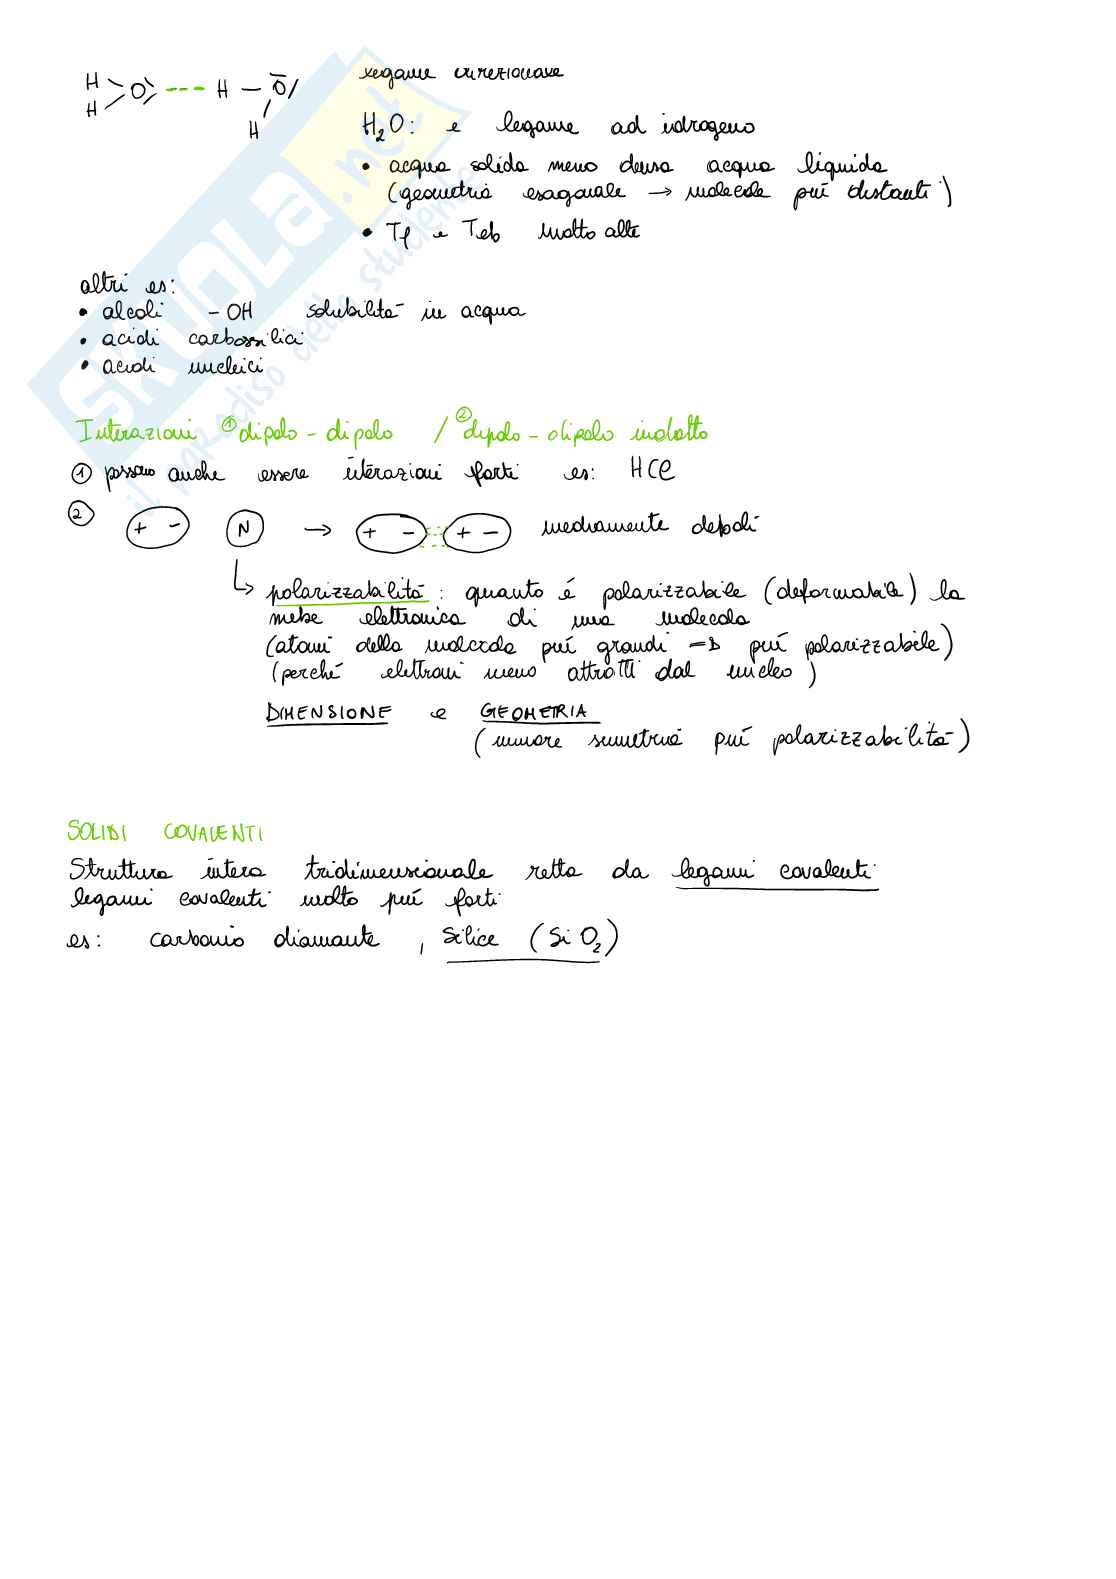 H
H O --- H — O
H
legame direzionale
H₂O: e legame ad idrogeno
• acqua solida meno densa acqua liquida
(geometria esagonale → molecole piú distanti)
• Tf e Teb molto alte
altri es:
• alcoli -OH solubilitá in acqua
• acidi carbossilici
• acidi nucleici
Interazioni ① dipolo - dipolo / ② dipolo - dipolo indotto
① possono anche essere interazioni forti es: HCl
② + - N → + - + - mediamente deboli
↳ polarizzabilitá: quanto é polarizzabile (deformabile) la
nube elettronica di una molecola
(atomi della molecola piú grandi → piú polarizzabile)
(perché elettroni meno attratti dal nucleo)
DIMENSIONE e GEOMETRIA
(minore simmetria piú polarizzabilitá)
SOLIDI COVALENTI
Struttura intera tridimensionale retta da legami covalenti
legami covalenti molto piú forti
es: carbonio diamante, silice (SiO₂)
SKUOLA.net
il paradiso dello studente